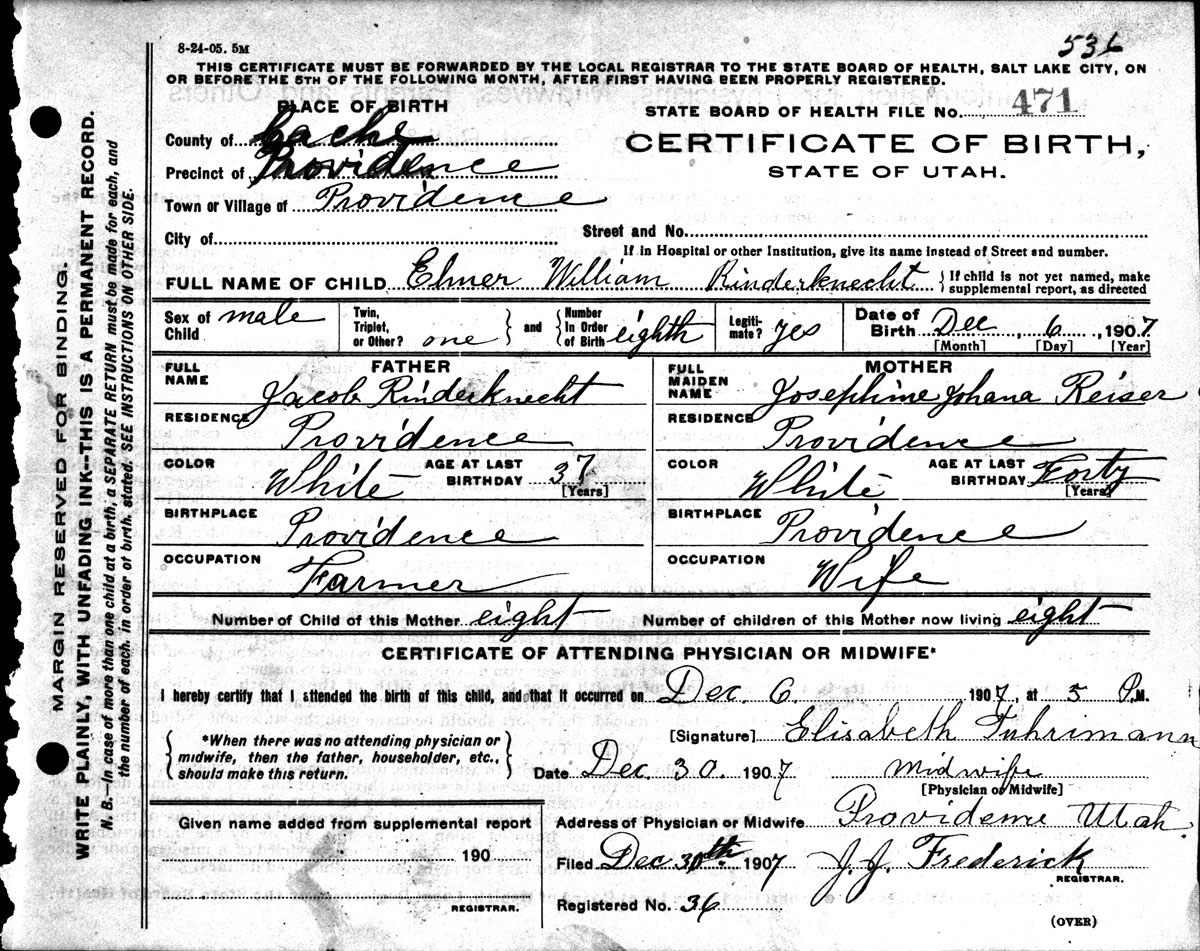 8-24-05. 5M
536
THIS CERTIFICATE MUST BE FORWARDED BY THE LOCAL REGISTRAR TO THE STATE BOARD OF HEALTH, SALT LAKE CITY, ON
OR BEFORE THE 5TH OF THE FOLLOWING MONTH, AFTER FIRST HAVING BEEN PROPERLY REGISTERED.
PLACE OF BIRTH
STATE BOARD OF HEALTH FILE No. 471
County of Cache
CERTIFICATE OF BIRTH,
Precinct of Providence
STATE OF UTAH.
Town or Village of Providence
City of
Street and No.
If in Hospital or other Institution, give its name instead of Street and number.
FULL NAME OF CHILD Elmer William Rinderknecht { If child is not yet named, make
supplemental report, as directed
Sex of Child male
Twin, Triplet, or Other? one } and { Number In Order of Birth eighth
Legiti-mate? yes
Date of Birth Dec 6, 1907
[Month] [Day] [Year]
FATHER
FULL NAME Jacob Rinderknecht
RESIDENCE Providence
COLOR White AGE AT LAST BIRTHDAY 37
[Years]
BIRTHPLACE Providence
OCCUPATION Farmer
MOTHER
FULL MAIDEN NAME Josephine Johana Reiser
RESIDENCE Providence
COLOR White AGE AT LAST BIRTHDAY Forty
[Years]
BIRTHPLACE Providence
OCCUPATION Wife
Number of Child of this Mother eight Number of children of this Mother now living eight
CERTIFICATE OF ATTENDING PHYSICIAN OR MIDWIFE*
I hereby certify that I attended the birth of this child, and that it occurred on Dec. 6. 1907, at 5 P.M.
{ *When there was no attending physician or
midwife, then the father, householder, etc.,
should make this return. }
[Signature] Elisabeth Fuhrimann
Date Dec 30. 1907 Midwife
[Physician or Midwife]
Given name added from supplemental report
190
REGISTRAR.
Address of Physician or Midwife Providence Utah.
Filed Dec 30th. 1907 J.J. Frederick
REGISTRAR.
Registered No. 36
(OVER)
MARGIN RESERVED FOR BINDING.
WRITE PLAINLY, WITH UNFADING INK--THIS IS A PERMANENT RECORD.
N. B.—In case of more than one child at a birth, a SEPARATE RETURN must be made for each, and
the number of each, in order of birth, stated. SEE INSTRUCTIONS ON OTHER SIDE.